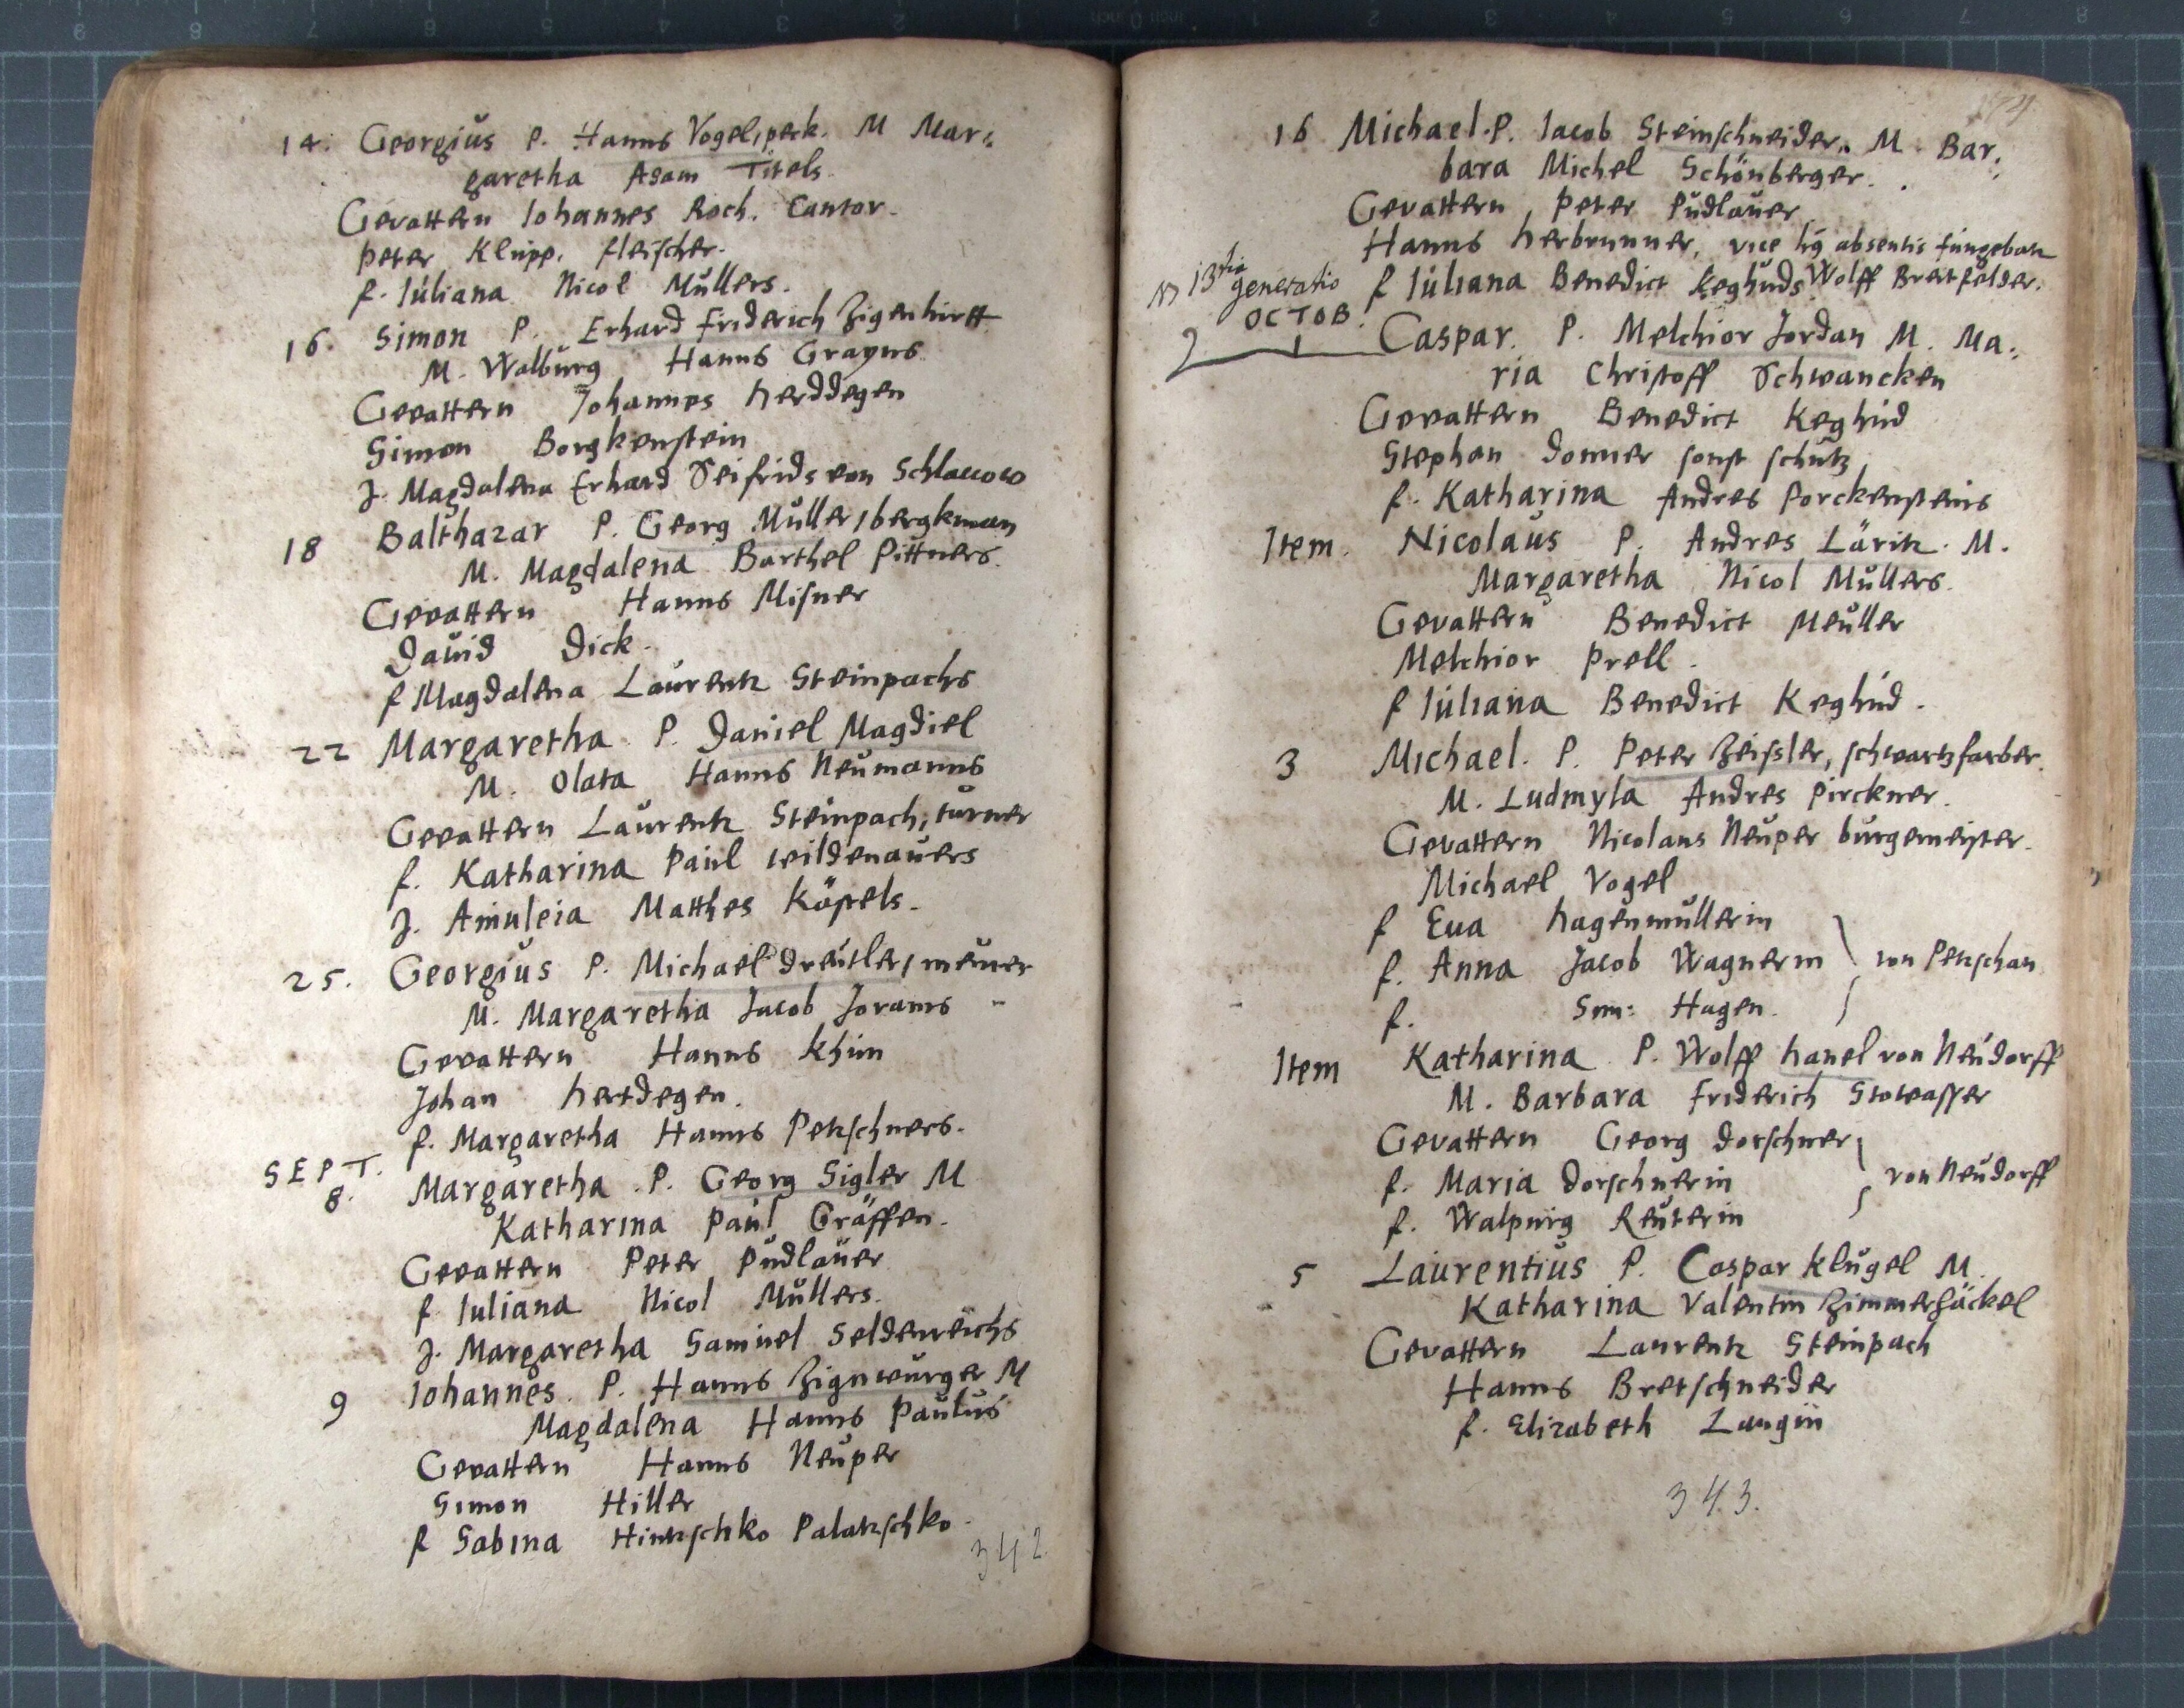 14. Georgius P. Hanns Vogelspeck. M Mar:
garetha Adam Titels.
Gevattern Iohannes Koch. Cantor.
Peter Klupp. fleischer.
f. Iúliana Nicol Müllers.
16. Simon P. Erhard Friderich Zigenhirtt
M. Walbŭrg Hanns Grayns
Gevattern Johannes Herddegen
Simon Borgkenstein
J. Magdalena Erhard Seifrids von
18 Balthazar P. Georg Müller, bergkman
M. Magdalena Barthel Pittners.
Gevattern Hanns Misner
Dauid Dick.
f Magdalena Laŭrentz Steinpachs
22 Margaretha P. Daniel Magdiel
M. Olata Hanns Neŭmanns
Gevattern Laŭrentz Steinpach, türner
f. Katharina Paŭl wildenaŭers
J. Amuleia Matthes Köpels.
25. Georgiŭs P. Michael Dreŭtler,
M. Margaretha Jacob Jorams
Gevattern Hanns Khün
Johan Hertdegen.
f. Margaretha Hanns Petzschners.
SEPT.
8. Margaretha P. Georg Sigler M
Katharina Paŭl Gräffen.
Gevattern Peter Pŭdlaŭer
f Iuliana Nicol Müllers.
J. Margaretha Samŭel Seldenreichs
9 Iohannes. P. Hanns Zignwŭrger M
Magdalena Hanns Paŭlŭs
Gevattern Hanns Neŭper
Simon Hiller
f Sabina Hintzschko Palatzschko.
342
16 Michael. P. Iacob Steinschneider. M. Bar:
bara Michel Schönberger.
Gevattern Peter Pŭdlaŭer
Hanns Herbrunner, vice hŭ absentis fŭngebatur
f Iŭliana Benedict Keghŭds Wolff Breitfelder.
13tia generatio
OCTOB.
1 Caspar. P. Melchior Jordan M. Ma:
ria Christoff Schwancken
Gevattern Benedict Keghŭd
Stephan Donner sonst schŭtz
f. Katharina Andres Porckensteins
Item. Nicolaŭs P. Andres Läritz. M.
Margaretha Nicol Müllers.
Gevattern Benedict Meŭller
Melchior Prell.
f Iŭliana Benedict Keghŭd.
3 Michael. P. Peter Zeissler, schwartzfarber.
M. Ludmyla Andres Pirckner.
Gevattern Nicolaus Neŭper bŭrgemeister.
Michael Vogel
f Eua Hagenmŭllerin
f. Anna Jacob Wagnerin von Petschau
f. Sim: Hagen.
Item Katharina P. Wolff Hanel von Neŭdorff
M. Barbara Friderich Stowasser
Gevattern Georg Dorschner
f. Maria Dorschnerin von Neŭdorff
f. Walpŭrg Reŭterin
5 Laŭrentiŭs P. Caspar Klŭgel M.
Katharina Valentin Zimmerhäckel
Gevattern Laurentz Steinpach
Hanns Bretschneider
f. Elizabeth Langin
343.